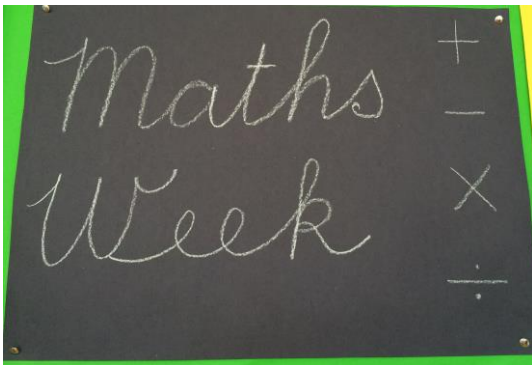 Maths
Week
+
−
×
÷